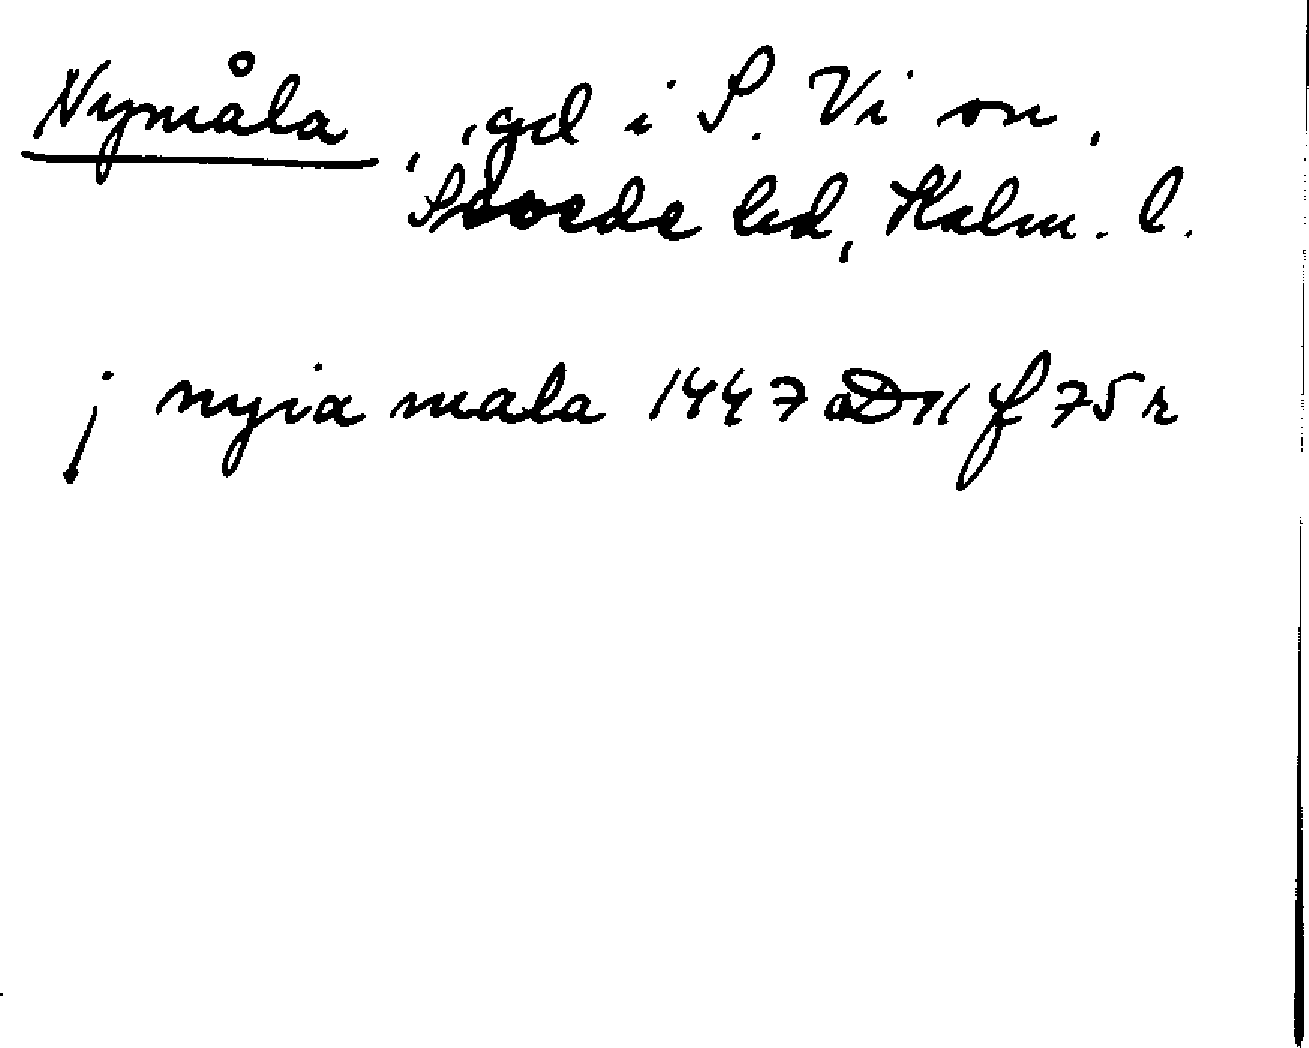 Nymåla, gd i S. Vi sn,
Sevede hd, Kalm. l.
j nyia mala 1447 aD11 f 75 r